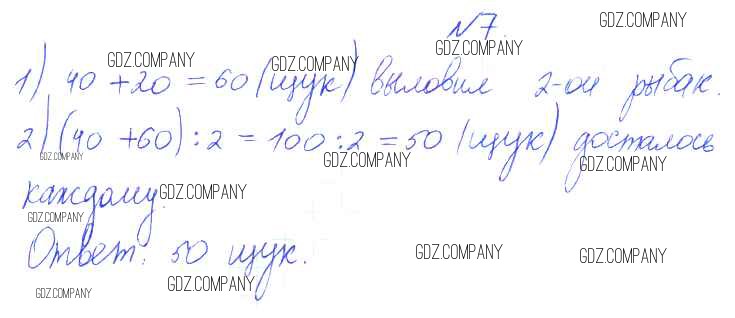 №7.
1) 40 + 20 = 60 (щук) выловил 2-ой рыбак.
2) (40 + 60) : 2 = 100 : 2 = 50 (щук) досталось
каждому.
Ответ: 50 щук.
GDZ.COMPANY
GDZ.COMPANY
GDZ.COMPANY
GDZ.COMPANY
GDZ.COMPANY
GDZ.COMPANY
GDZ.COMPANY
GDZ.COMPANY
GDZ.COMPANY
GDZ.COMPANY
GDZ.COMPANY
GDZ.COMPANY
GDZ.COMPANY